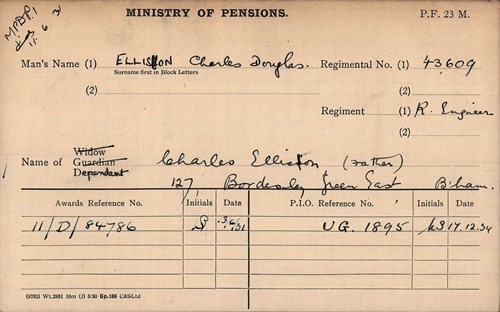 MINISTRY OF PENSIONS. P.F. 23 M.
11.6.31
Man's Name (1) ELLISON Charles Douglas. Regimental No. (1) 43,609
Surname first in Block Letters
(2) (2)
Regiment (1) R. Engineer
(2)
Widow
Name of Guardian Charles Ellison (Father)
Dependant
127, Bordesley Green East B'ham.
Awards Reference No. Initials Date P.I.O. Reference No. Initials Date
11/D/84786 UG. 1895 17.12.34
(9752) Wt.2831 10m (J) 3/30 Gp.188 C&SLtd